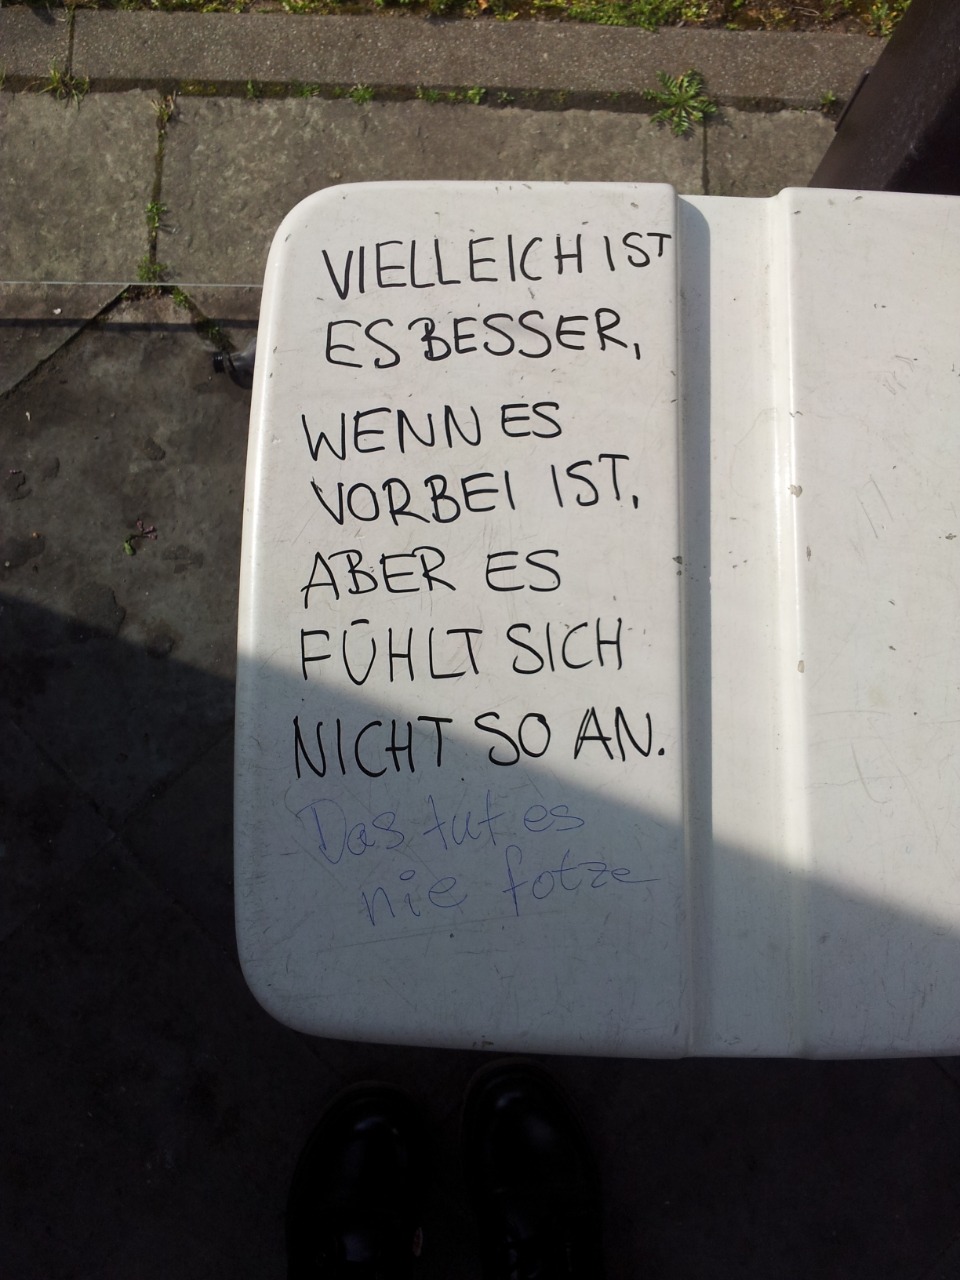 VIELLEICH IST
ES BESSER,
WENN ES
VORBEI IST,
ABER ES
FÜHLT SICH
NICHT SO AN.
Das tut es
nie fotze